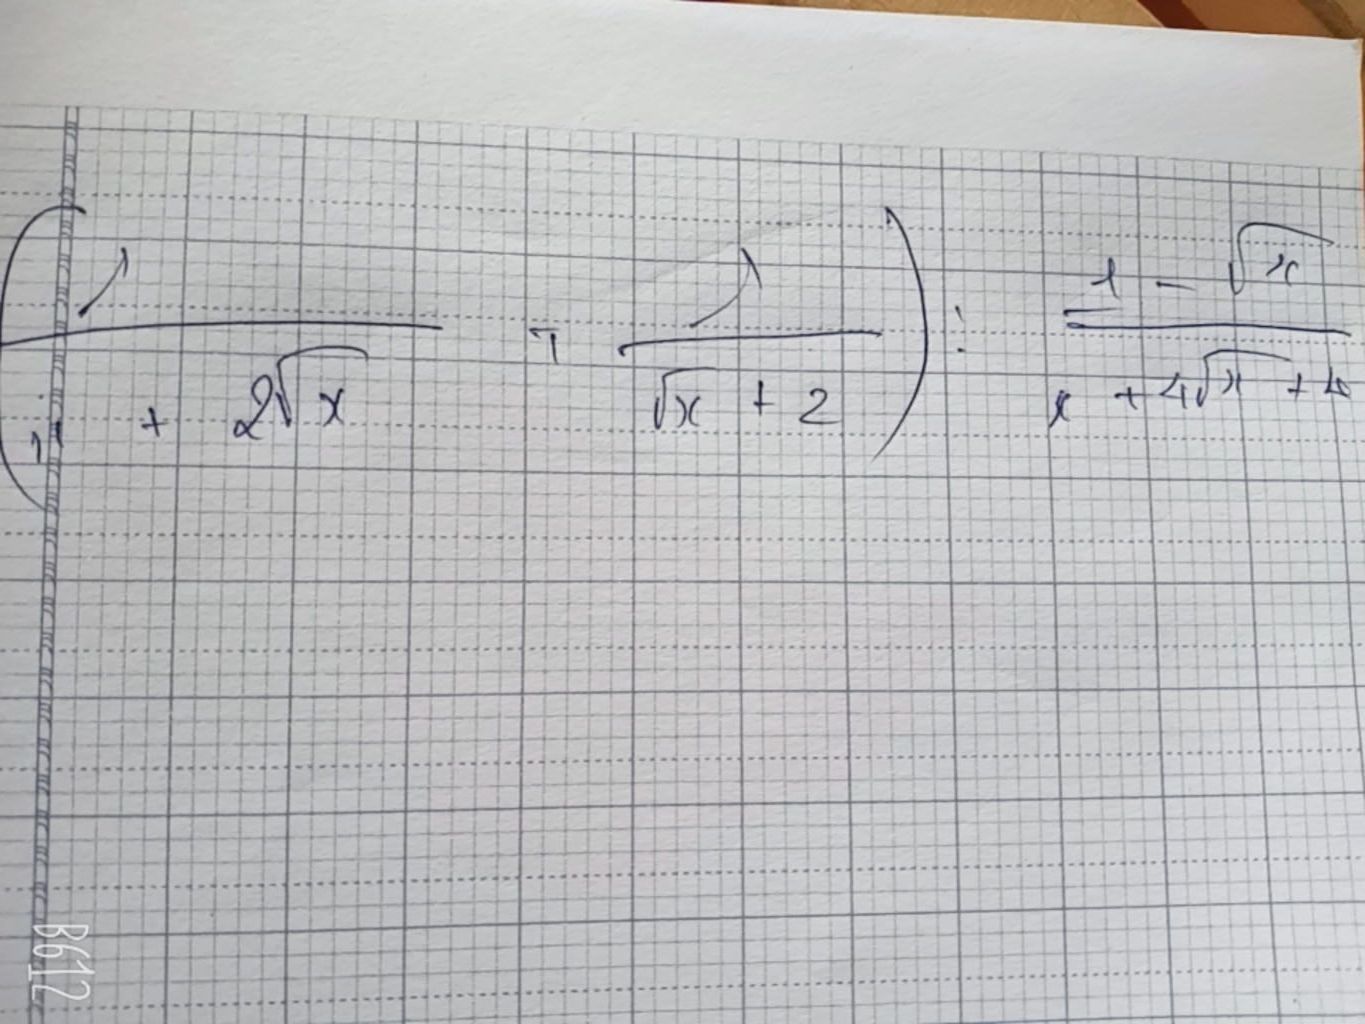 ( 1 / x + 2√x - 1 / √x + 2 ) : 1 - √x / x + 4√x + 4
B612